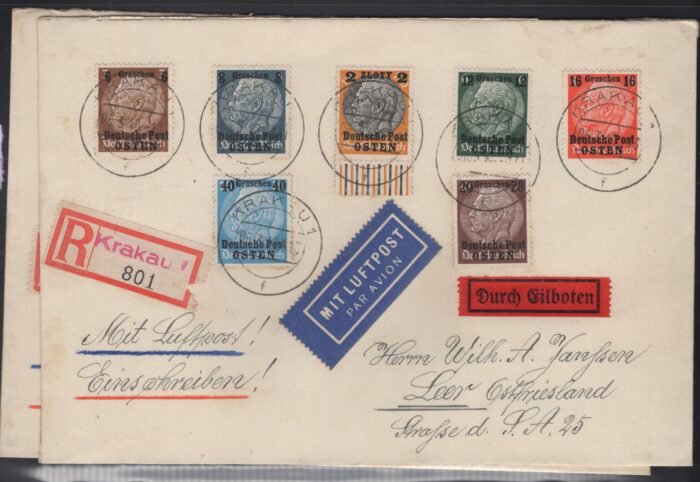 6 Groschen 6
Deutsche Post
OSTEN
8 Groschen 8
Deutsche Post
OSTEN
2 ZLOTY 2
Deutsche Post
OSTEN
12 Groschen 12
Deutsche Post
OSTEN
16 Groschen 16
Deutsche Post
OSTEN
KRAKAU 1
f
KRAKAU 1
f
KRAKAU 1
f
KRAKAU 1
f
KRAKAU 1
f
40 Groschen 40
Deutsche Post
OSTEN
Deutsches Reich
KRAKAU 1
f
20 Groschen 20
Deutsche Post
OSTEN
Deutsches Reich
R Krakau 1
801
MIT LUFTPOST
PAR AVION
Durch Eilboten
Mit Luftpost!
Einschreiben!
Herrn Wilh. A. Janssen
Leer Ostfriesland
Straße d. S.A. 25